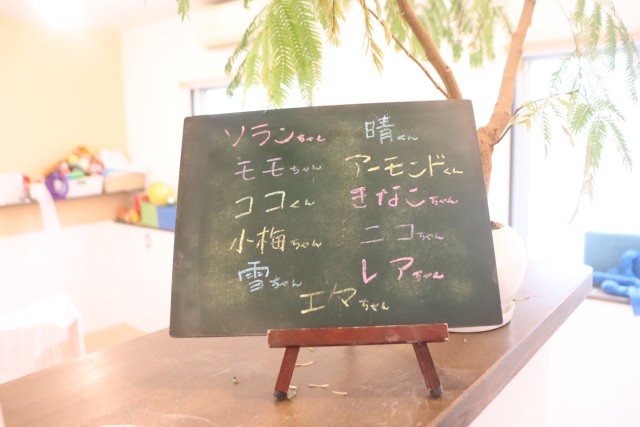 ソランちゃん 晴くん
モモちゃん アーモンドくん
ココくん きなこちゃん
小梅ちゃん ニコちゃん
雪ちゃん レアちゃん
エマちゃん